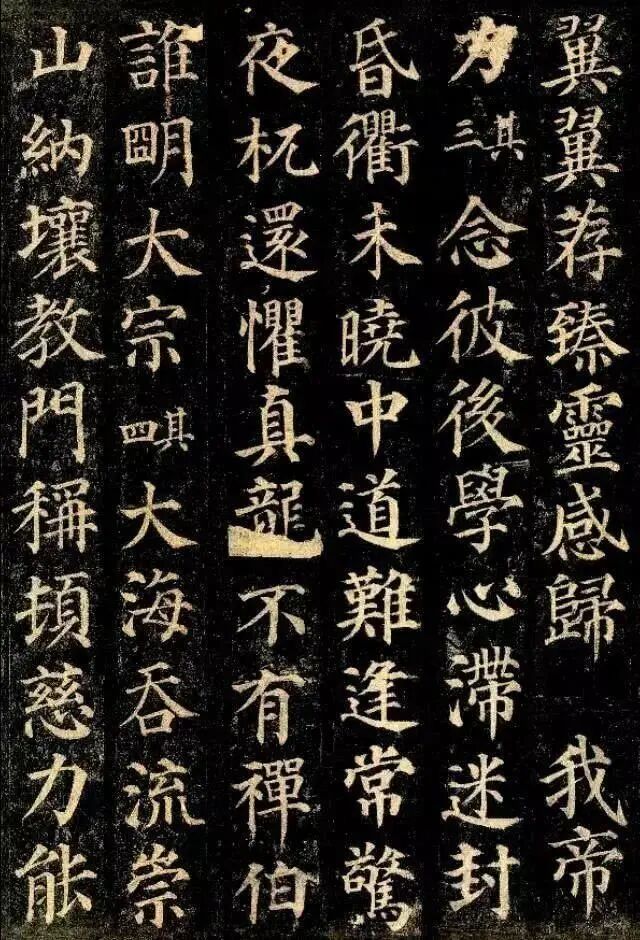 翼翼荐臻靈感歸　我帝
力其三念彼後學心滯迷封
昏衢未曉中道難逢常驚
夜杌還懼真龍不有禪伯
誰明大宗其四大海吞流崇
山納壤教門稱頓慈力能